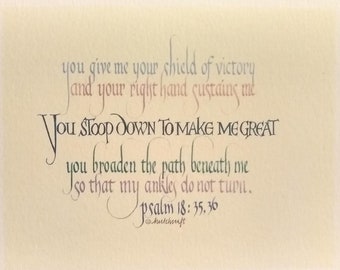 you give me your shield of victory
and your right hand sustains me
You stoop down to make me great
you broaden the path beneath me
so that my ankles do not turn.
psalm 18:35,36